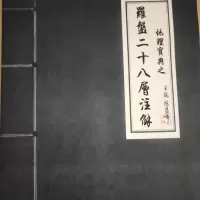 地理寶典之
羅盤二十八層注解